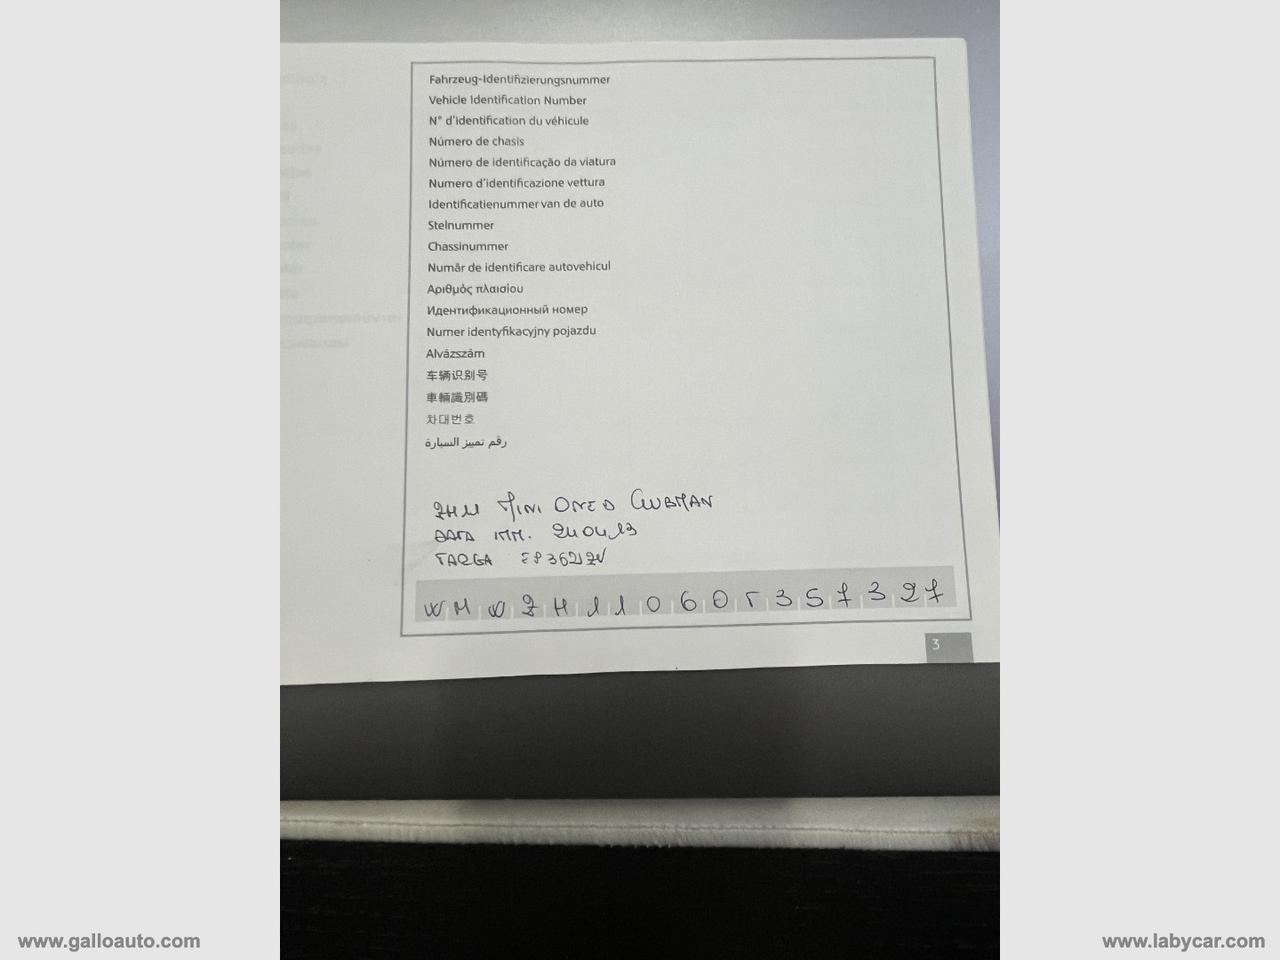 Fahrzeug-Identifizierungsnummer
Vehicle Identification Number
N° d'identification du véhicule
Número de chasis
Número de identificação da viatura
Numero d'identificazione vettura
Identificatienummer van de auto
Stelnummer
Chassinummer
Număr de identificare autovehicul
Αριθμὸς πλαισίου
Идентификационный номер
Numer identyfikacyjny pojazdu
Alvázszám
车辆识别号
車輛識別碼
차대번호
رقم تمييز السيارة
ZH11 MINI ONE D CLUBMAN
DATA IMM. 240413
TARGA
WMWZH11060T357327
3
www.galloauto.com
www.labycar.com